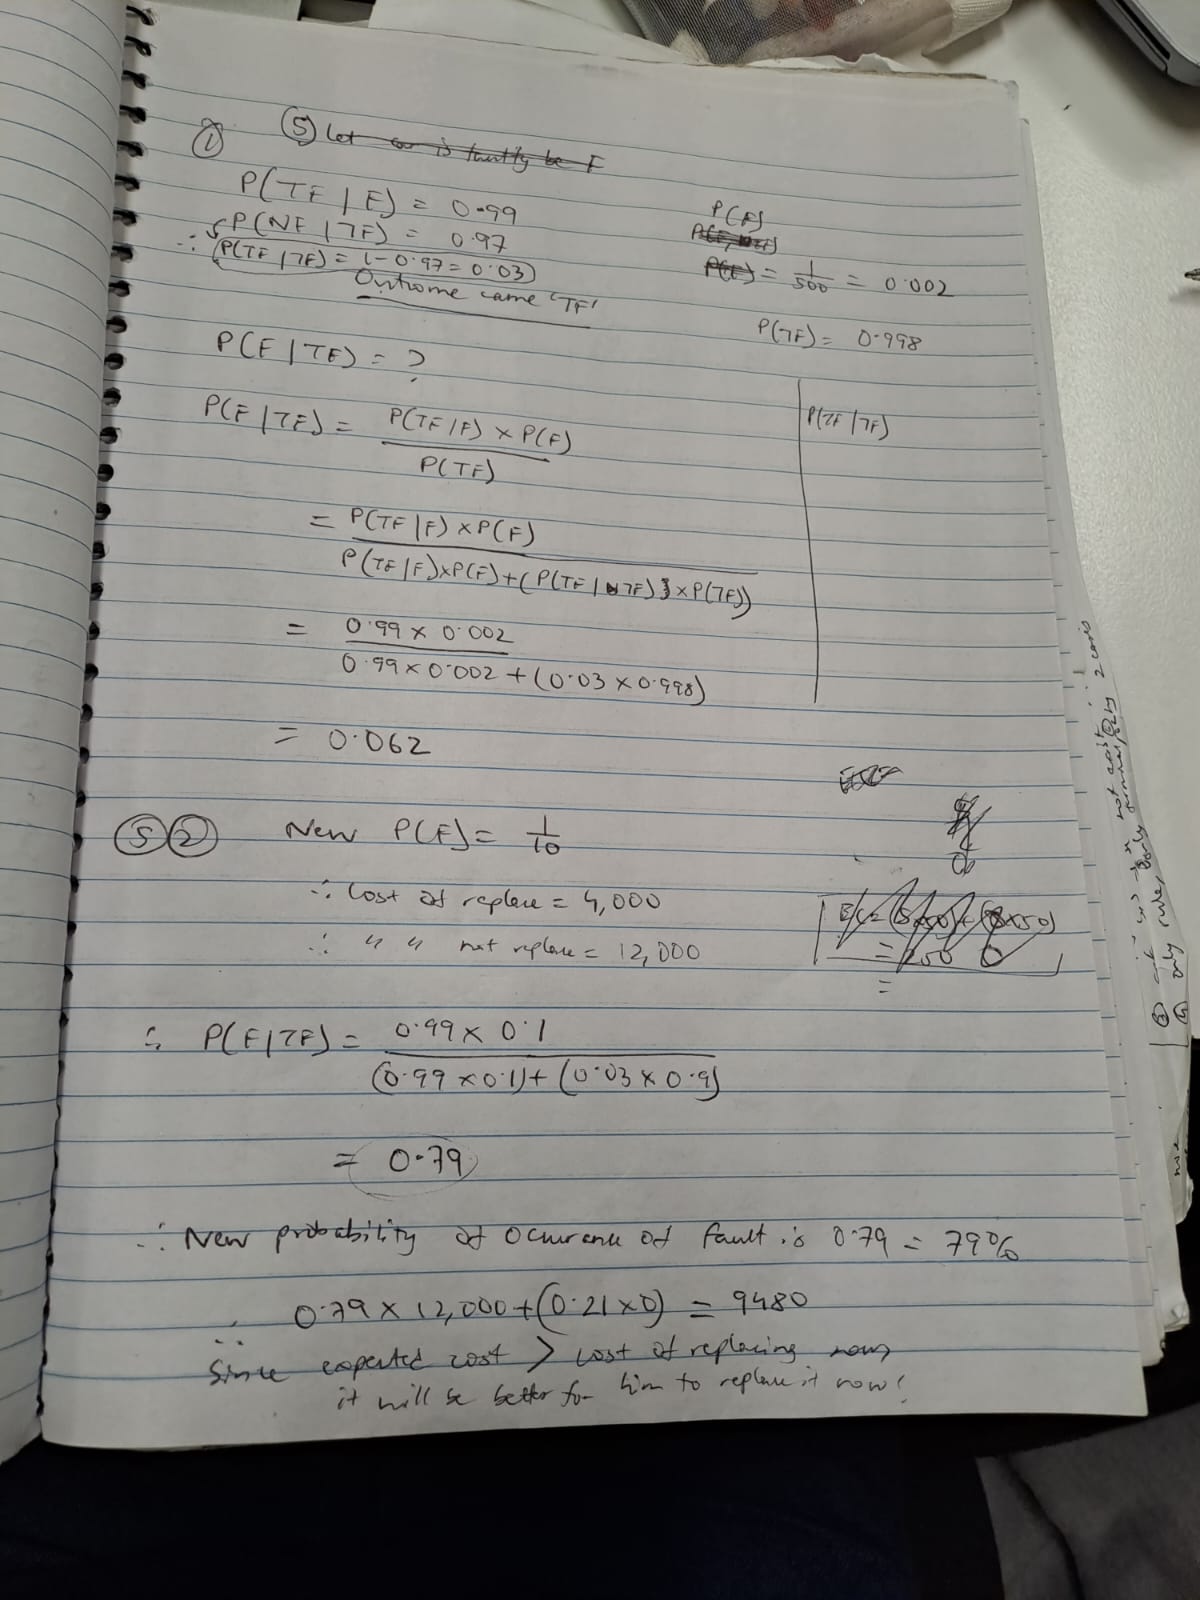 ①
⑤ Let car is faulty be F
P(TF | F) = 0.99
P(NF | ¬F) = 0.97
∴ P(TF | ¬F) = 1-0.97 = 0.03
Outcome came 'TF'
P(F)
= 1/500 = 0.002
P(¬F) = 0.998
P(F | TF) = ?
P(F | TF) = P(TF | F) × P(F)
P(TF)
P(TF | ¬F)
= P(TF | F) × P(F)
P(TF | F)×P(F)+(P(TF | ¬F)}×P(¬F))
= 0.99 × 0.002
0.99 × 0.002 + (0.03 × 0.998)
= 0.062
⑤② New P(F) = 1/10
∴ Cost of replace = 4,000
∴ " " not replace = 12,000
=
∴ P(F | TF) = 0.99 × 0.1
(0.99 × 0.1)+ (0.03 × 0.9)
= 0.79
∴ New probability of Ocurance of fault is 0.79 = 79%
∴ 0.79 × 12,000 + (0.21 × 0) = 9480
Since expected cost > cost of replacing now,
it will be better for him to replace it now!
only rule,
2 cows